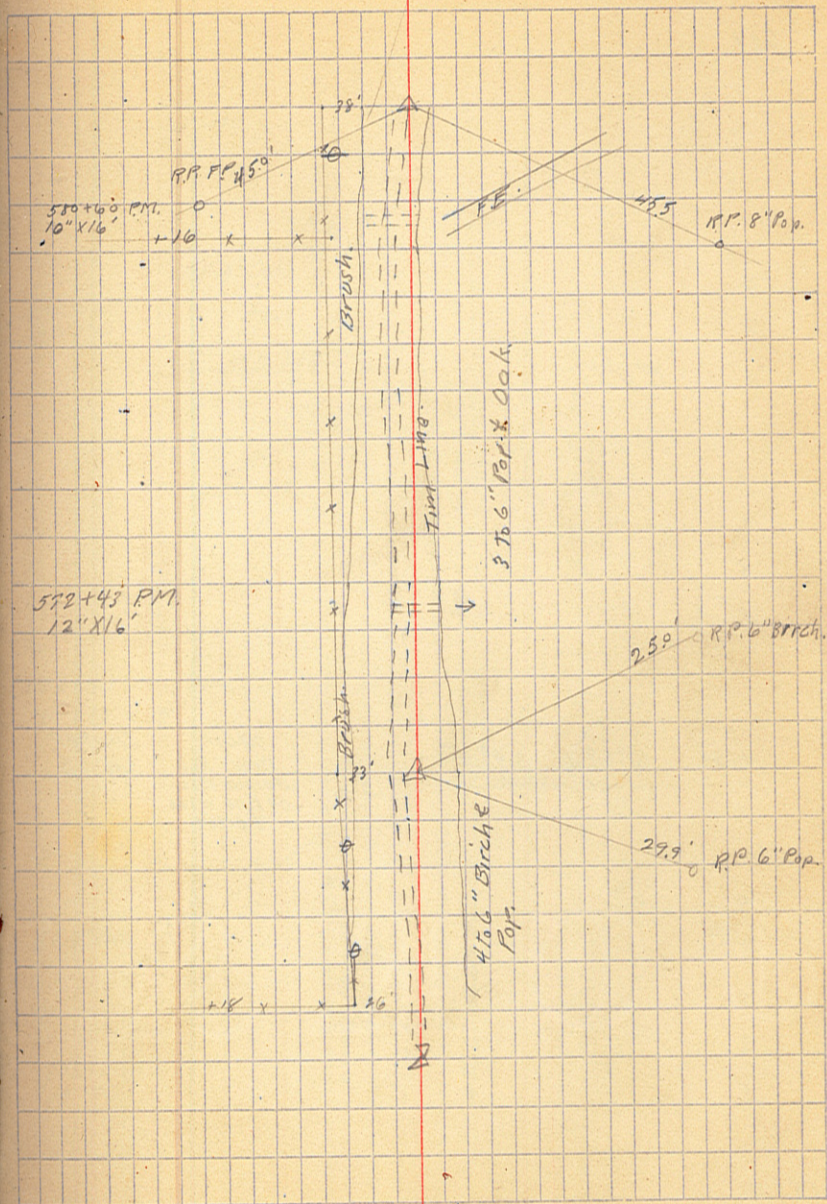 38'
R.P. F.P. 45.0'
580+60 P.M.
10" X 16'
+16
F.E.
45.5
R.P. 8" Pop.
Brush.
3 To 6" Pop. & Oak.
Tim Line.
572+43 P.M.
12" X 16'
25.0'
R.P. 6" Birch.
Brush.
33'
29.9'
R.P. 6" Pop.
4 To 6" Birch &
Pop.
+18
26'